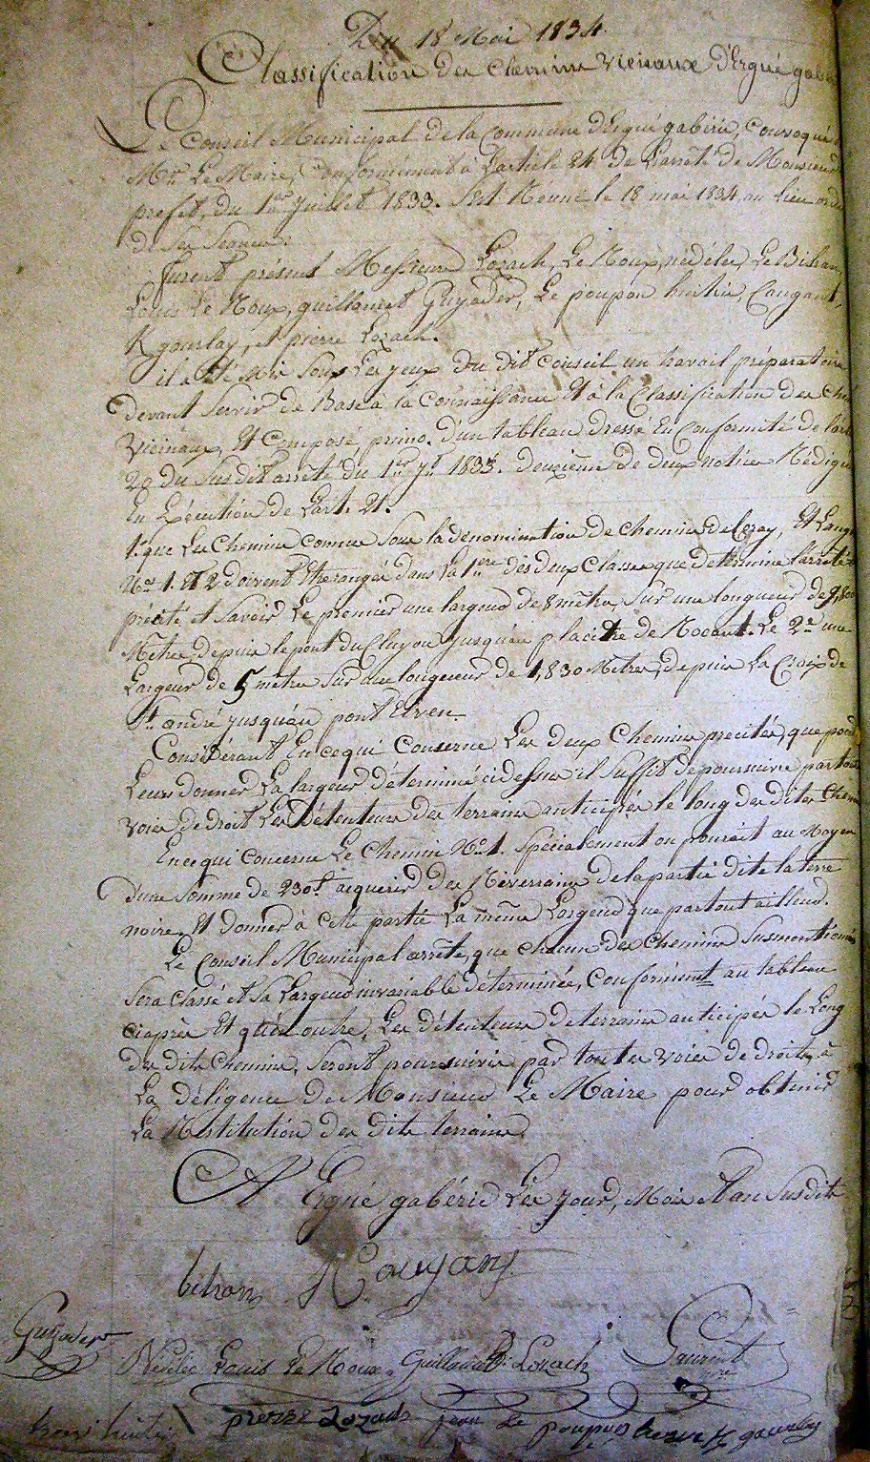 Du 18 Mai 1834.
Classification des chemins vicinaux d'Ergué gabé
Le Conseil Municipal de la Commune d'Ergué gabéric, convoqué
Mr Le Maire, Conformément à L'article 24 de L'arrêté de Monsieur
prefet, du 1er Juillet 1833. S'est Réuni le 18 mai 1834, au lieu
de Ses Séances.
furent présents Messieurs Lozach, Le Roux, nédélec, Le Bihan,
Louis Le Roux, guillaume Guyader, Le poupon, huitric, Caugant,
Kgourlay, et pierre Lozach.
il a été mis Sous Les yeux du dit Conseil un travail préparatoire
devant Servir de Base à la Connaissance Et à la Classification des che
vicinaux, Et Composé, primo. d'un tableau dressé En Conformité de l'art
20 du Susdit arrêté du 1er Jt 1833. deuxième de deux notices Rédigé
En Exécution de L'art. 21.
1° que Les Chemins connus Sous la dénomination de chemins de Coray, Et
Nos 1. Et 2 doivent Etre rangés dans la 1ère des deux Classes que determine l'arrêté
précité et Savoir Le premier une largeur de 8 mètres, Sur une longueur de
Mètres, depuis le pont du Cluyou Jusqu'au placitre de. Le 2e une
Largeur de 5 mètres Sur une longueur de 1,830 Mètres, depuis La Croix de
St andré Jusqu'au pont Elven.
Considérant En ce qui Concerne Les deux Chemins précités, que pour
Leurs donner La largeur déterminé ci dessus il Suffit de poursuivre par toute
voies de droit Les Détenteurs des terrains anticipés le long des dites chem
En ce qui concerne Le Chemin No 1. Spécialement on pourait au Moyen
d'une Somme de 230f. acquerir des Riverrains de la partie dite la terre
noire, Et donner à cette partie La même Largeur que partout ailleurs.
Le Conseil Municipal arrête, que chacun des Chemins Susmentionnés
Sera Classé et Sa Largeur invariable déterminée, Conformémt au tableau
ciaprès Et qu'en outre, Les détenteurs de terrains anticipés le Long
des dits Chemins, Seront poursuivis par toutes voies de droits, à
La déligence de Monsieur Le Maire pour obtenir
La Réstitution des dits terrains.
A Ergué gabéric Les Jour, Mois Et an Susdits
bihan Caugant
Guyader
Nédélic Louis Le Roux Guillaume Lozach Laurent
huitric pierre Lozach Jean Le poupon Kgourlay